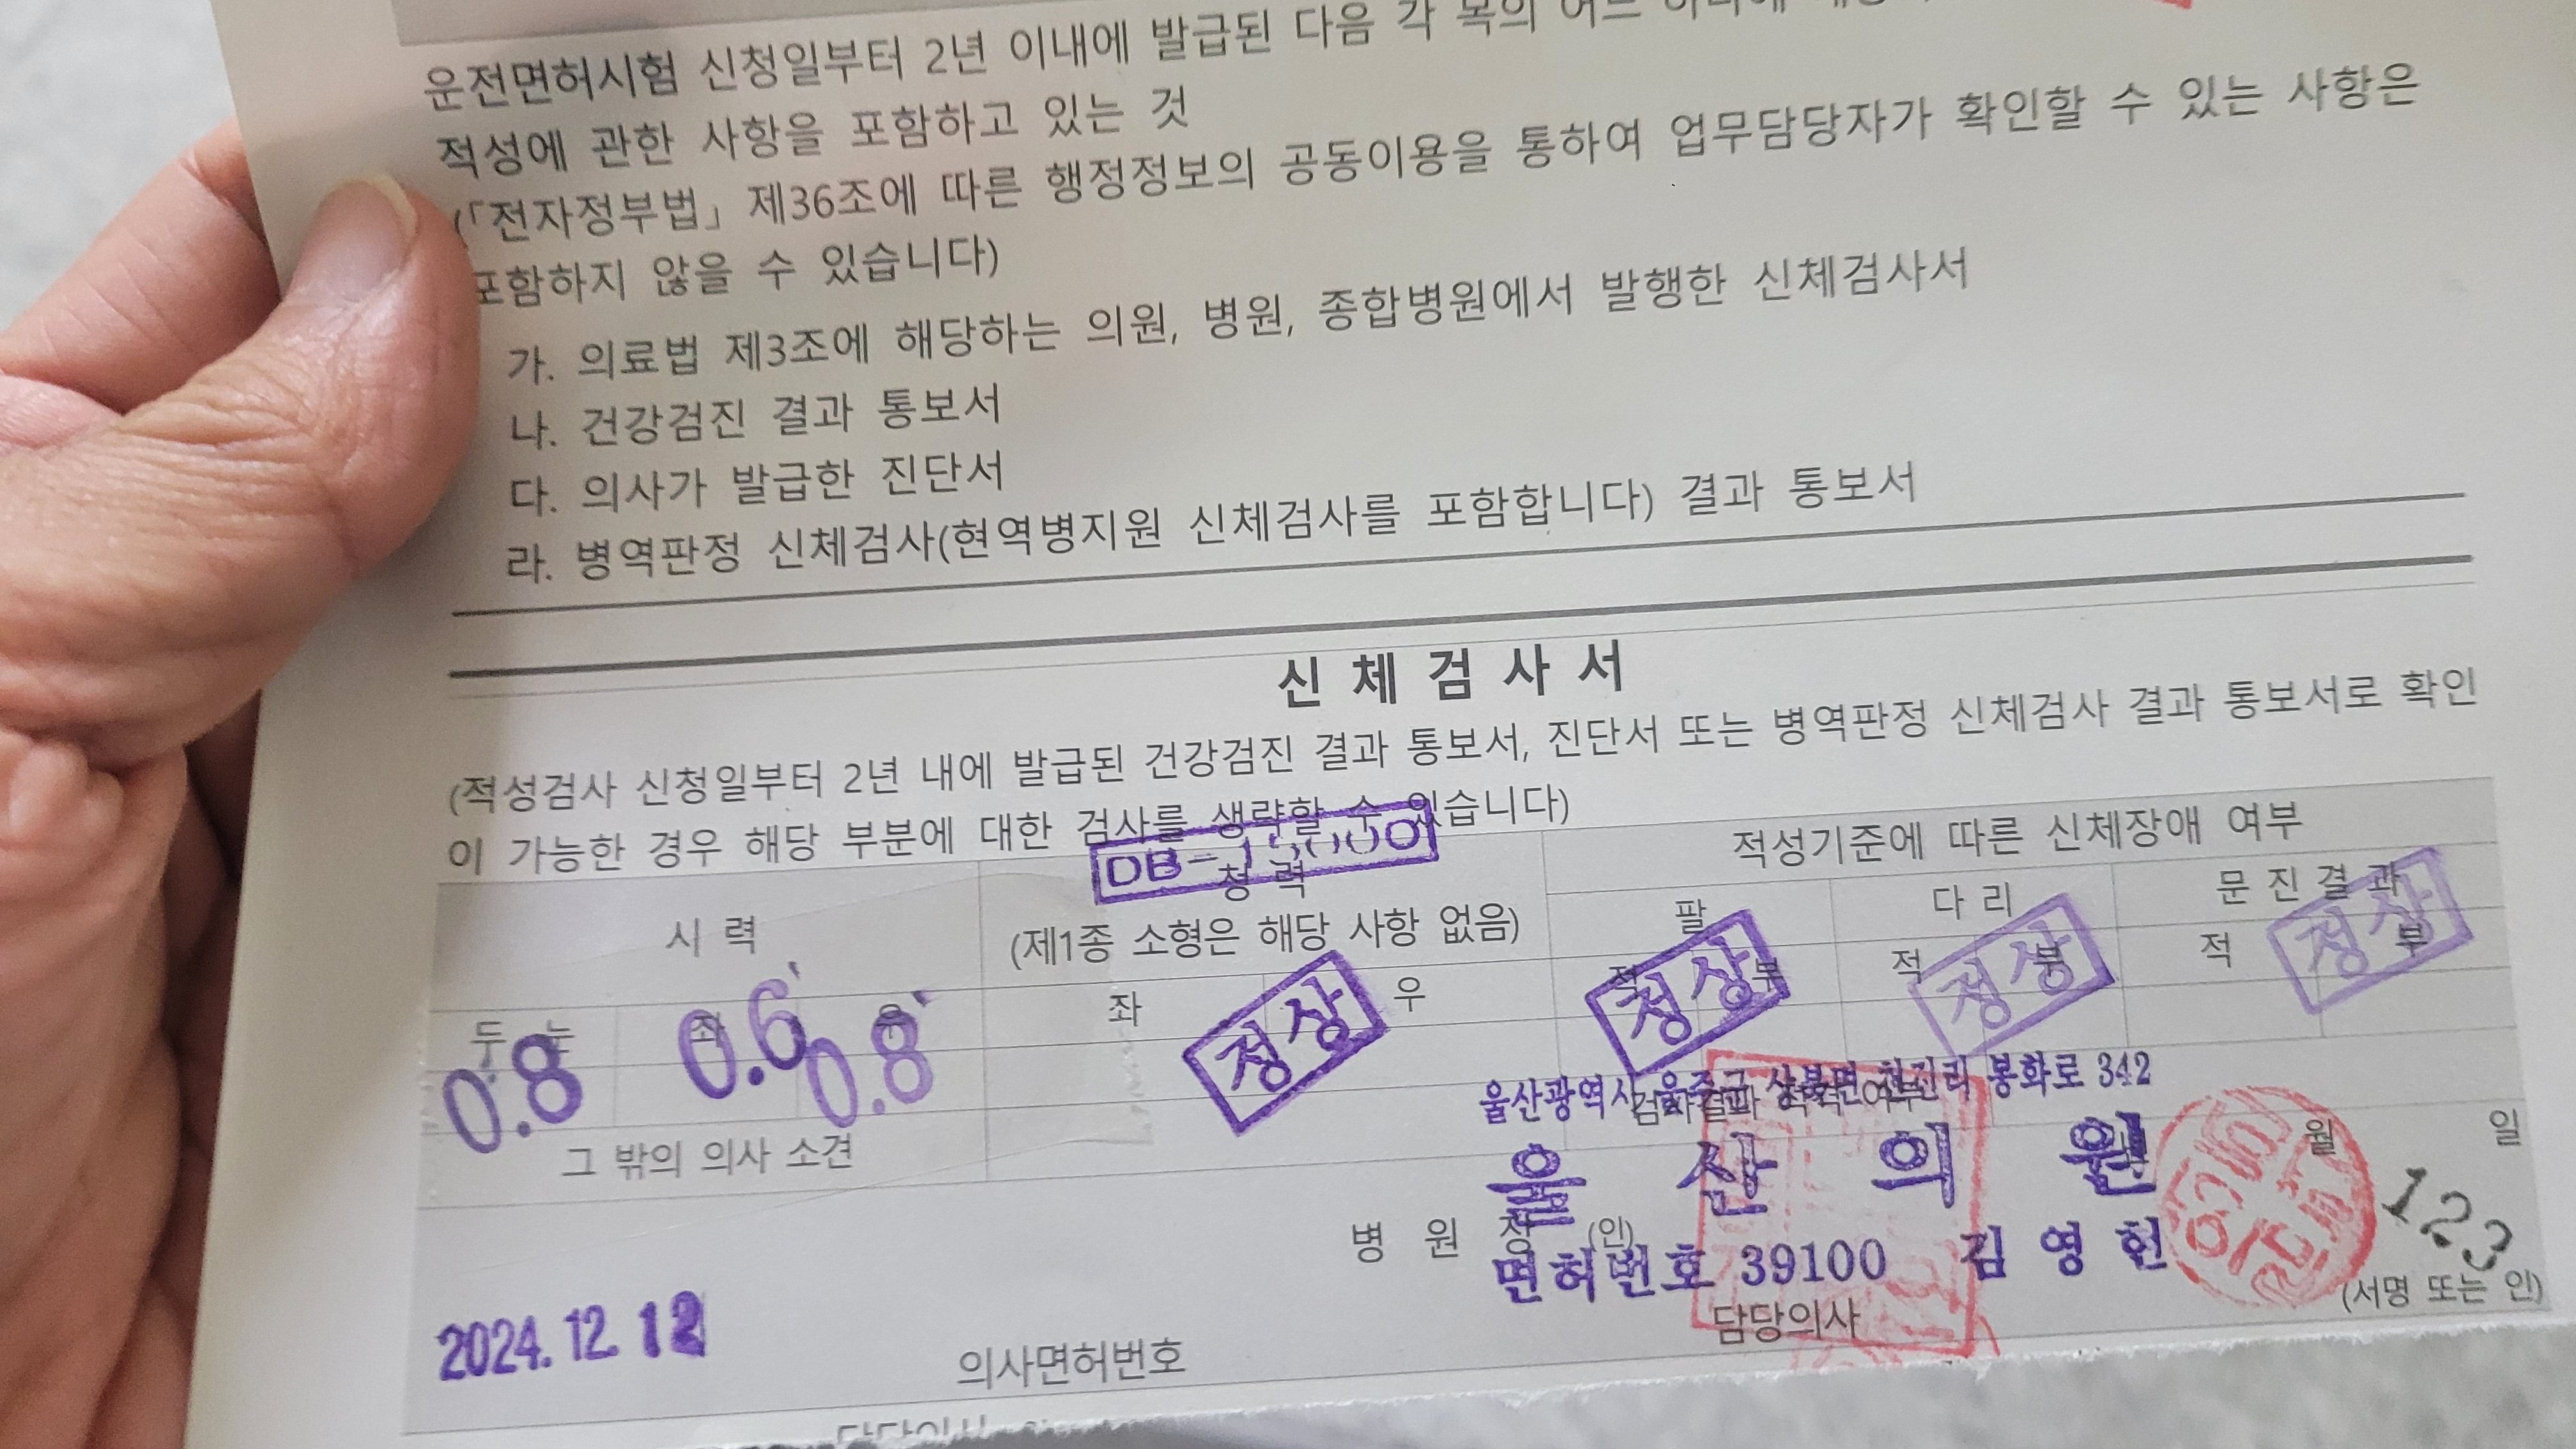 운전면허시험 신청일부터 2년 이내에 발급된 다음 각 목의 어느 하나에
적성에 관한 사항을 포함하고 있는 것
(「전자정부법」 제36조에 따른 행정정보의 공동이용을 통하여 업무담당자가 확인할 수 있는 사항은
포함하지 않을 수 있습니다)
가. 의료법 제3조에 해당하는 의원, 병원, 종합병원에서 발행한 신체검사서
나. 건강검진 결과 통보서
다. 의사가 발급한 진단서
라. 병역판정 신체검사(현역병지원 신체검사를 포함합니다) 결과 통보서
신 체 검 사 서
(적성검사 신청일부터 2년 내에 발급된 건강검진 결과 통보서, 진단서 또는 병역판정 신체검사 결과 통보서로 확인
이 가능한 경우 해당 부분에 대한 검사를 생략할 수 있습니다)
적성기준에 따른 신체장애 여부
시 력
청 력
(제1종 소형은 해당 사항 없음)
팔 다 리 문 진 결 과
적 부 적 부 적 부
정상 정상 정상
두 눈 좌 우
0.8 0.6 0.8
좌 우
정상
울산광역시 울주군 상북면 천전리 봉화로 342
그 밖의 의사 소견
울 산 의 원
월 일
병 원 장 (인)
면허번호 39100 김 영 헌
123
(서명 또는 인)
담당의사
2024. 12. 12
의사면허번호